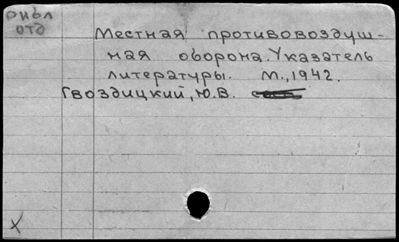 БИБЛ
ОТД
Местная противовоздуш-
ная оборона. Указатель
литературы. М., 1942.
Гвоздицкий, Ю.В.
X